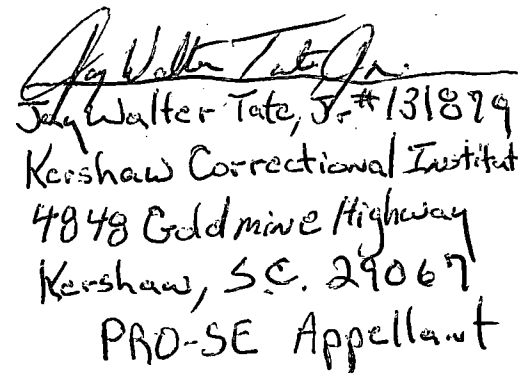 Jay Walter Tate Jr.
Jay Walter Tate, Jr #131879
Kershaw Correctional Institut
4848 Goldmine Highway
Kershaw, S.C. 29067
PRO-SE Appellant